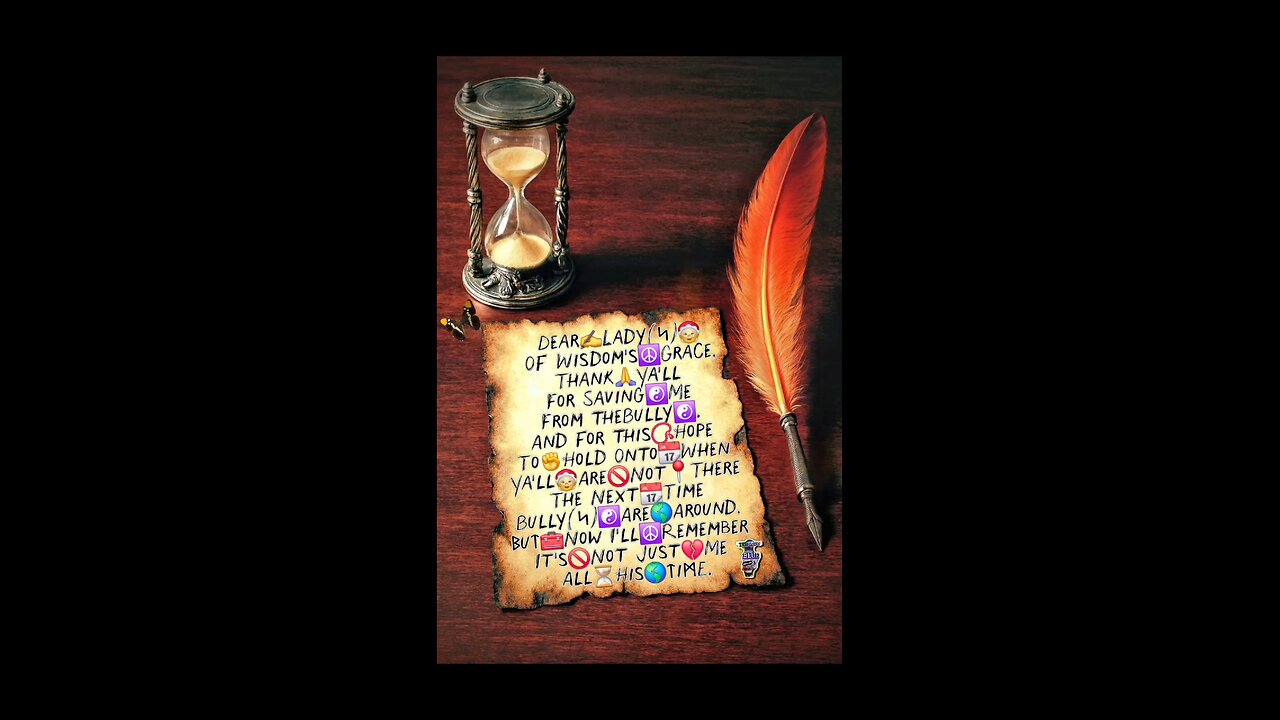 DEAR✍️LADY(4)🤶
OF WISDOM'S☮️GRACE.
THANK🙏YA'LL
FOR SAVING☯️ME
FROM THEBULLY☯️.
AND FOR THIS📿HOPE
TO✊HOLD ONTO📅WHEN
YA'LL🤶ARE🚫NOT📍THERE
THE NEXT📅TIME
BULLY(4)☯️ARE🌎AROUND.
BUT🧰NOW I'LL☮️REMEMBER
IT'S🚫NOT JUST💔ME
ALL⏳HIS🌎TIME.